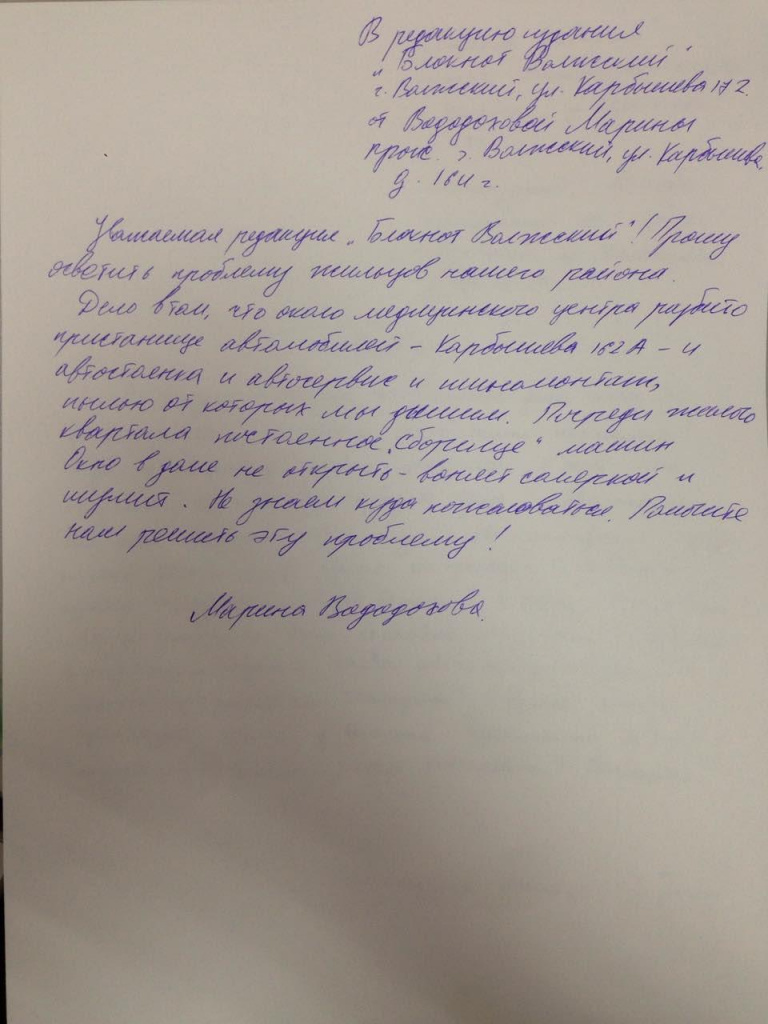 В редакцию издания
"Блокнот Волжский"
г. Волжский, ул. Карбышева 172
от Вододоховой Марины
прож. г. Волжский, ул. Карбышева,
д. 164 г.
Уважаемая редакция „Блокнот Волжский"! Прошу
осветить проблему жильцов нашего района.
Дело в том, что около медицинского центра разбито
пристанище автомобилей - Карбышева 162А - и
автостоянка и автосервис и шиномонтаж,
пылью от которых мы дышим. Посреди жилого
квартала постоянное „сборище" машин
Окно в доме не открыть - воняет соляркой и
шумит. Не знаем куда пожаловаться. Помогите
нам решить эту проблему!
Марина Вододохова.